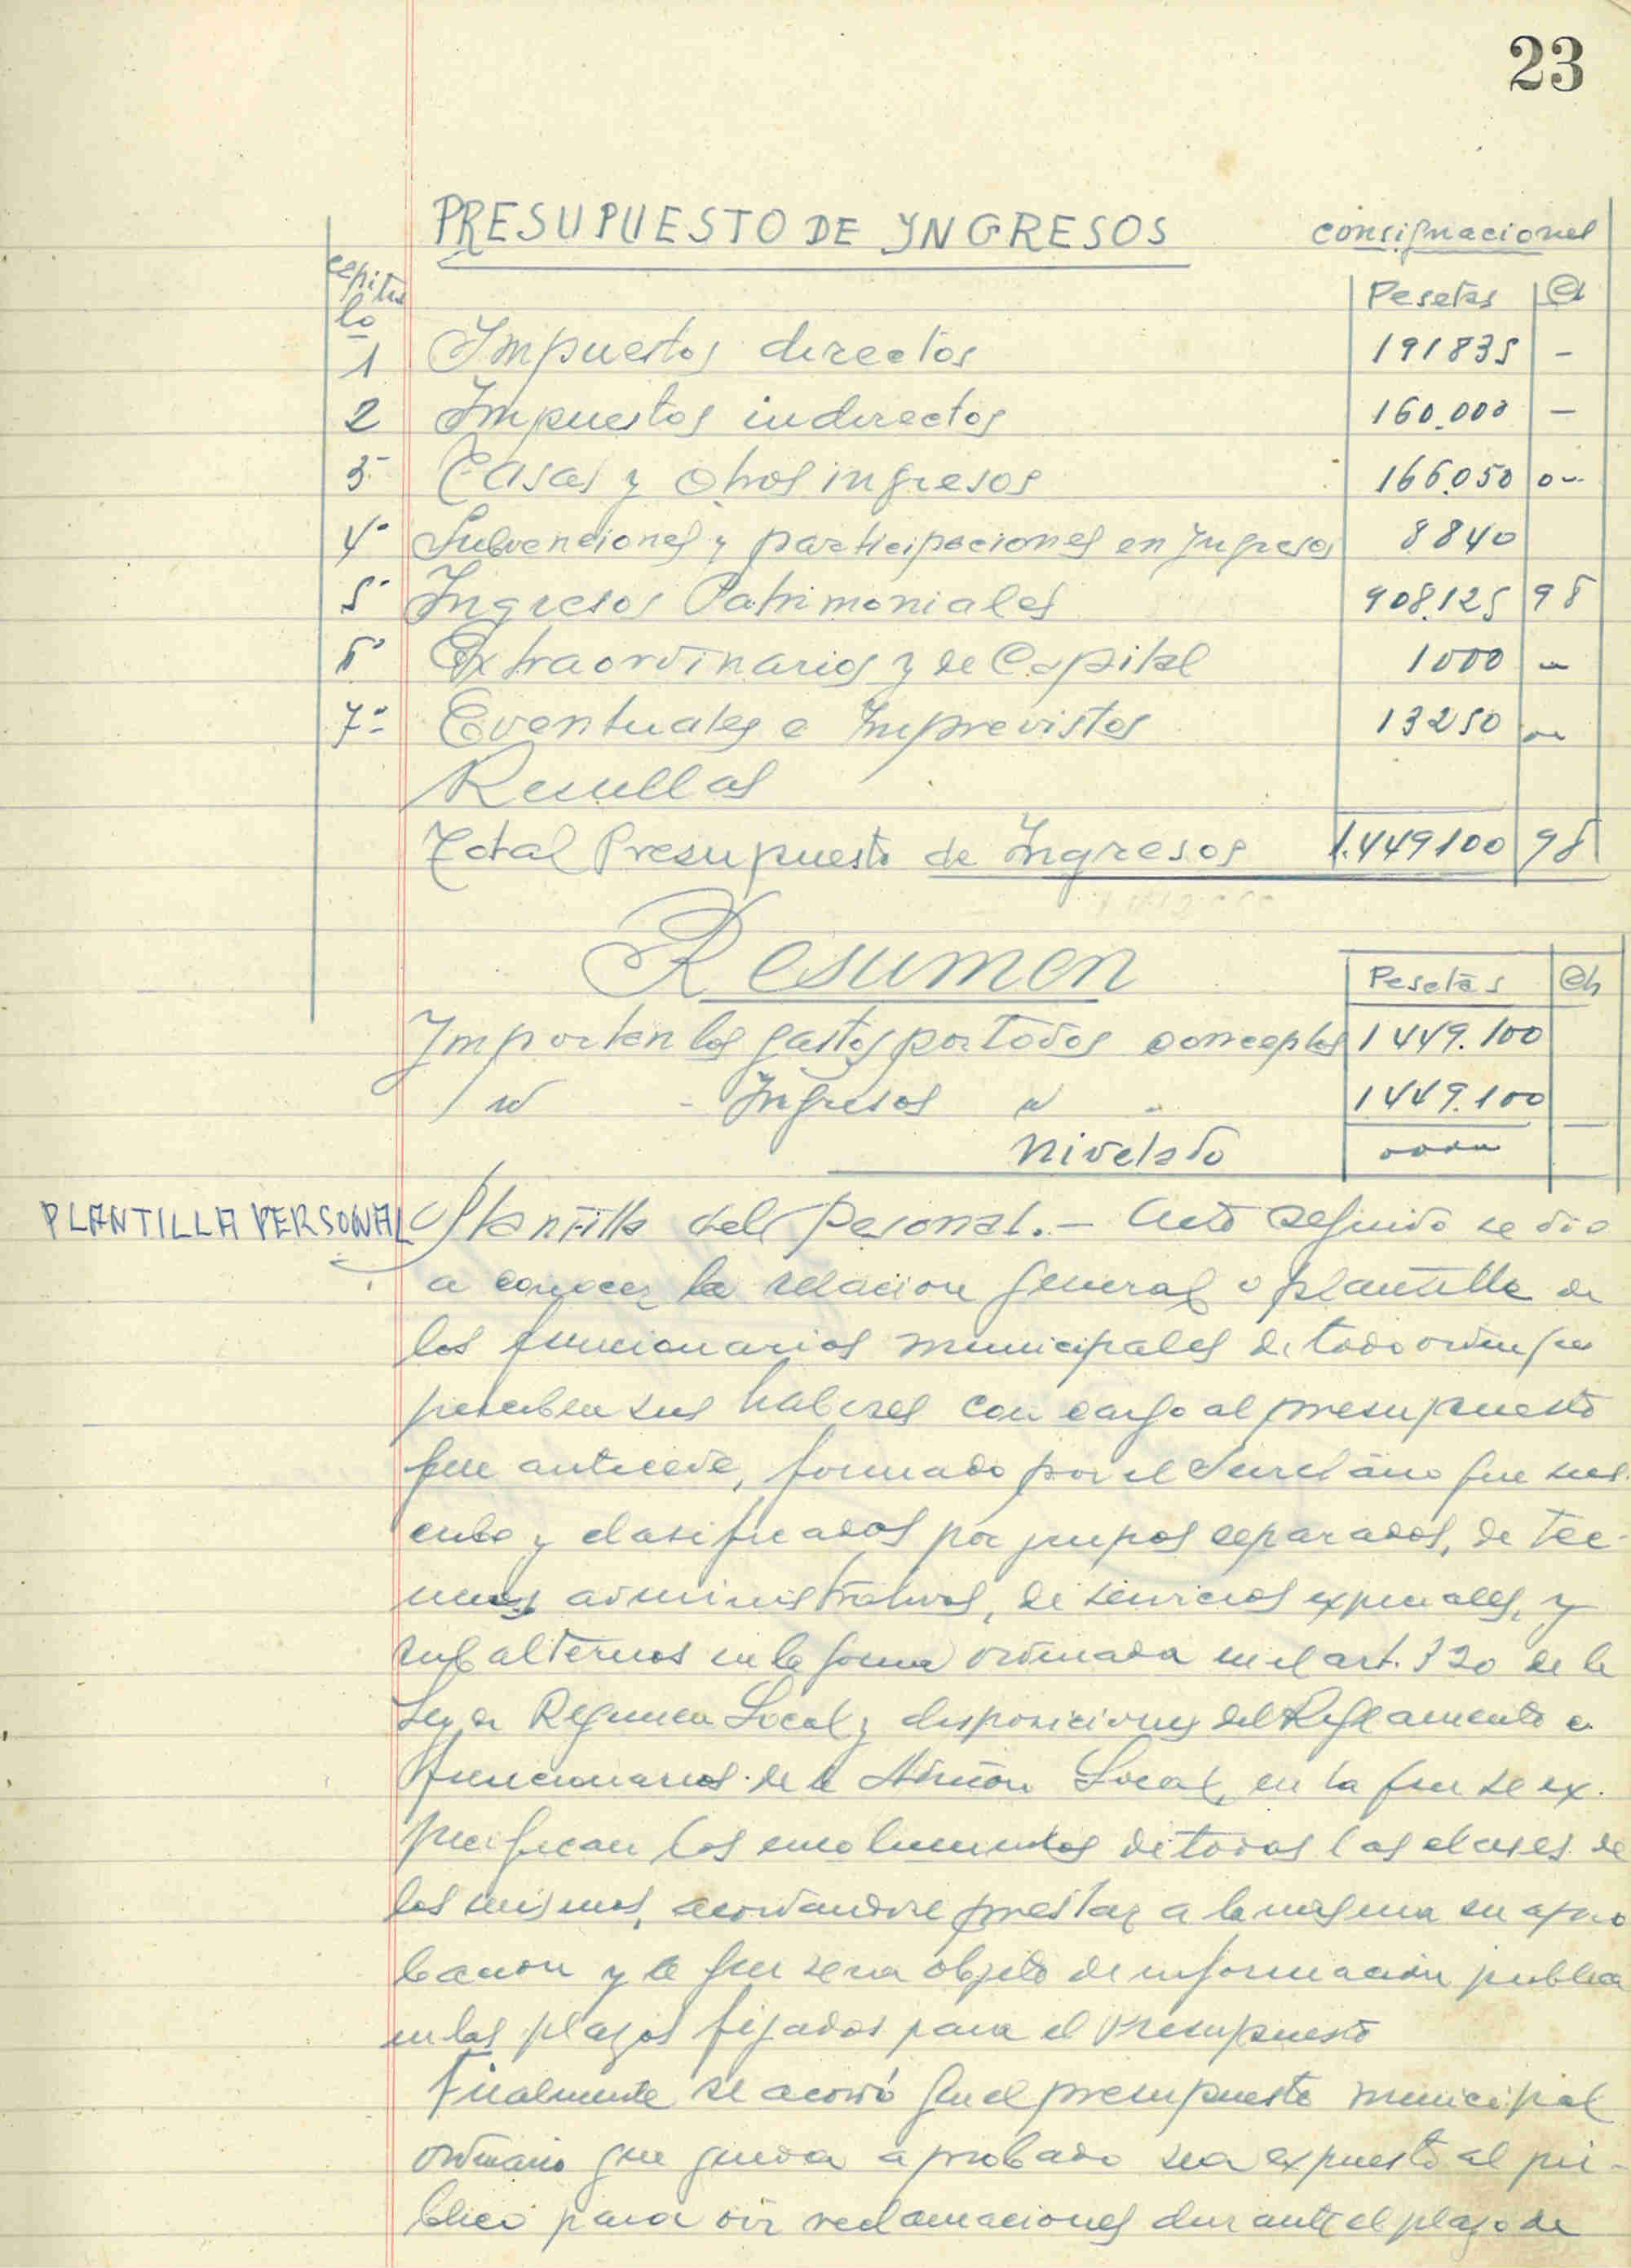 23
PRESUPUESTO DE YNGRESOS consignaciones
capitu
lo
Pesetas Cts
1 Impuestos directos 191835 -
2 Impuestos indirectos 160.000 -
3º Tasas y otros ingresos 166.050 0-
4º Subvenciones y participaciones en Ingresos 8840
5º Ingresos Patrimoniales 908.125 98
6º Extraordinarios y de Capital 1000 -
7º Eventuales e Imprevistos 13250 -
Resultas
Total Presupuesto de Ingresos 1.449100 98
Resumen Pesetas Cts
Importan los gastos por todos conceptos 1449.100
id - Ingresos id - 1449.100 -
Nivelado
PLANTILLA PERSONAL Plantilla del Pesonal.- Acto seguido se dio
a conocer la relacion general o plantilla de
los funcionarios municipales de todo orden que
perciben sus haberes con cargo al presupuesto
que antecede, formado por el Secretario que sus-
cribe y clasificados por grupos separados, de tec-
nicos administrativos, de servicios expeciales, y
subalternos en la forma ordenada en el art. 320 de la
Ley de Regimen Local y disposiciones del Reglamento de
funcionarios de la Admon Local, en la que se ex-
pecifican los emolumentos de todas las clases de
los mismos, acordandose prestar a la misma su apro
bacion y la que sera objeto de informacion publica
en los plazos fijados para el Presupuesto
Finalmente se acordó que el presupuesto municipal
ordinario que queda aprobado sea expuesto al pú-
blico para oir reclamaciones durante el plazo de